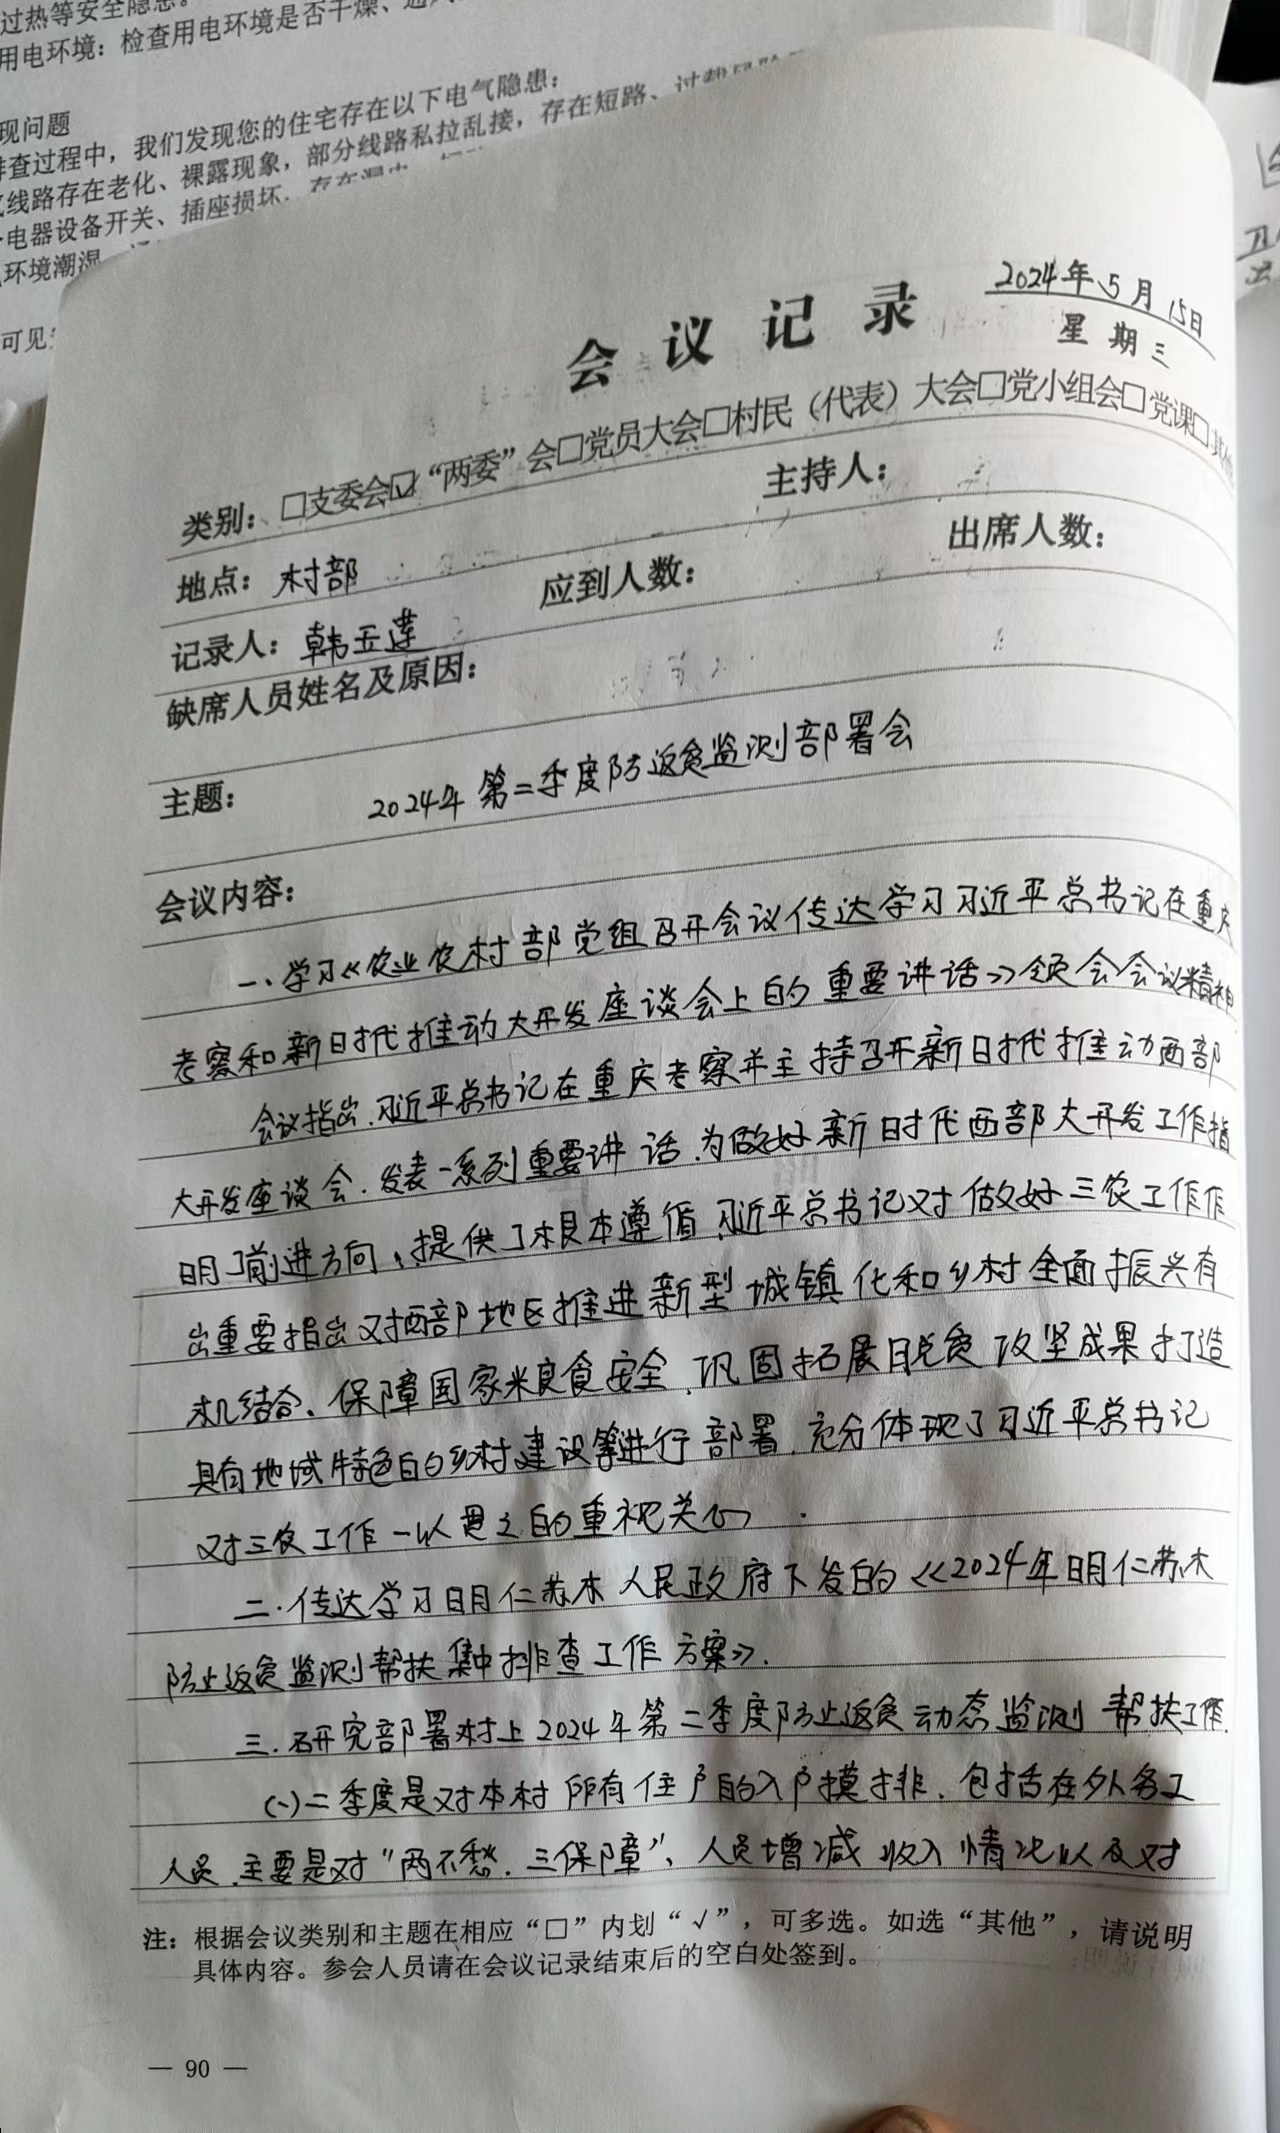 过热等安全隐患。
用电环境：检查用电环境是否干燥、通
现问题
排查过程中，我们发现您的住宅存在以下电气隐患：
线路存在老化、裸露现象，部分线路私拉乱接，存在短路、过载风险
电器设备开关、插座损坏，存在漏电
环境潮湿
可见
2024年5月15日
会议记录
星期三
类别：□支委会☑“两委”会□党员大会□村民（代表）大会□党小组会□党课□其他
主持人：
地点：村部
应到人数：
出席人数：
记录人：韩玉莲
缺席人员姓名及原因：
主题：2024年第二季度防返贫监测部署会
会议内容：
一、学习《农业农村部党组召开会议传达学习习近平总书记在重庆
考察和新时代推动大开发座谈会上的重要讲话》领会会议精神
会议指出，习近平总书记在重庆考察并主持召开新时代推动西部
大开发座谈会，发表一系列重要讲话，为做好新时代西部大开发工作指
明了前进方向，提供了根本遵循，习近平总书记对做好三农工作作
出重要指出对西部地区推进新型城镇化和乡村全面振兴有
机结合、保障国家粮食安全、巩固拓展脱贫攻坚成果打造
具有地域特色的乡村建设等进行部署，充分体现了习近平总书记
对三农工作一以贯之的重视关心
二．传达学习明仁苏木人民政府下发的《2024年明仁苏木
防止返贫监测帮扶集中排查工作方案》．
三．研究部署村上2024年第二季度防止返贫动态监测帮扶工作．
（一）二季度是对本村所有住户的入户摸排，包括在外务工
人员，主要是对“两不愁，三保障”、人员增减收入情况以及对
注：根据会议类别和主题在相应“□”内划“√”，可多选。如选“其他”，请说明
具体内容。参会人员请在会议记录结束后的空白处签到。
— 90 —